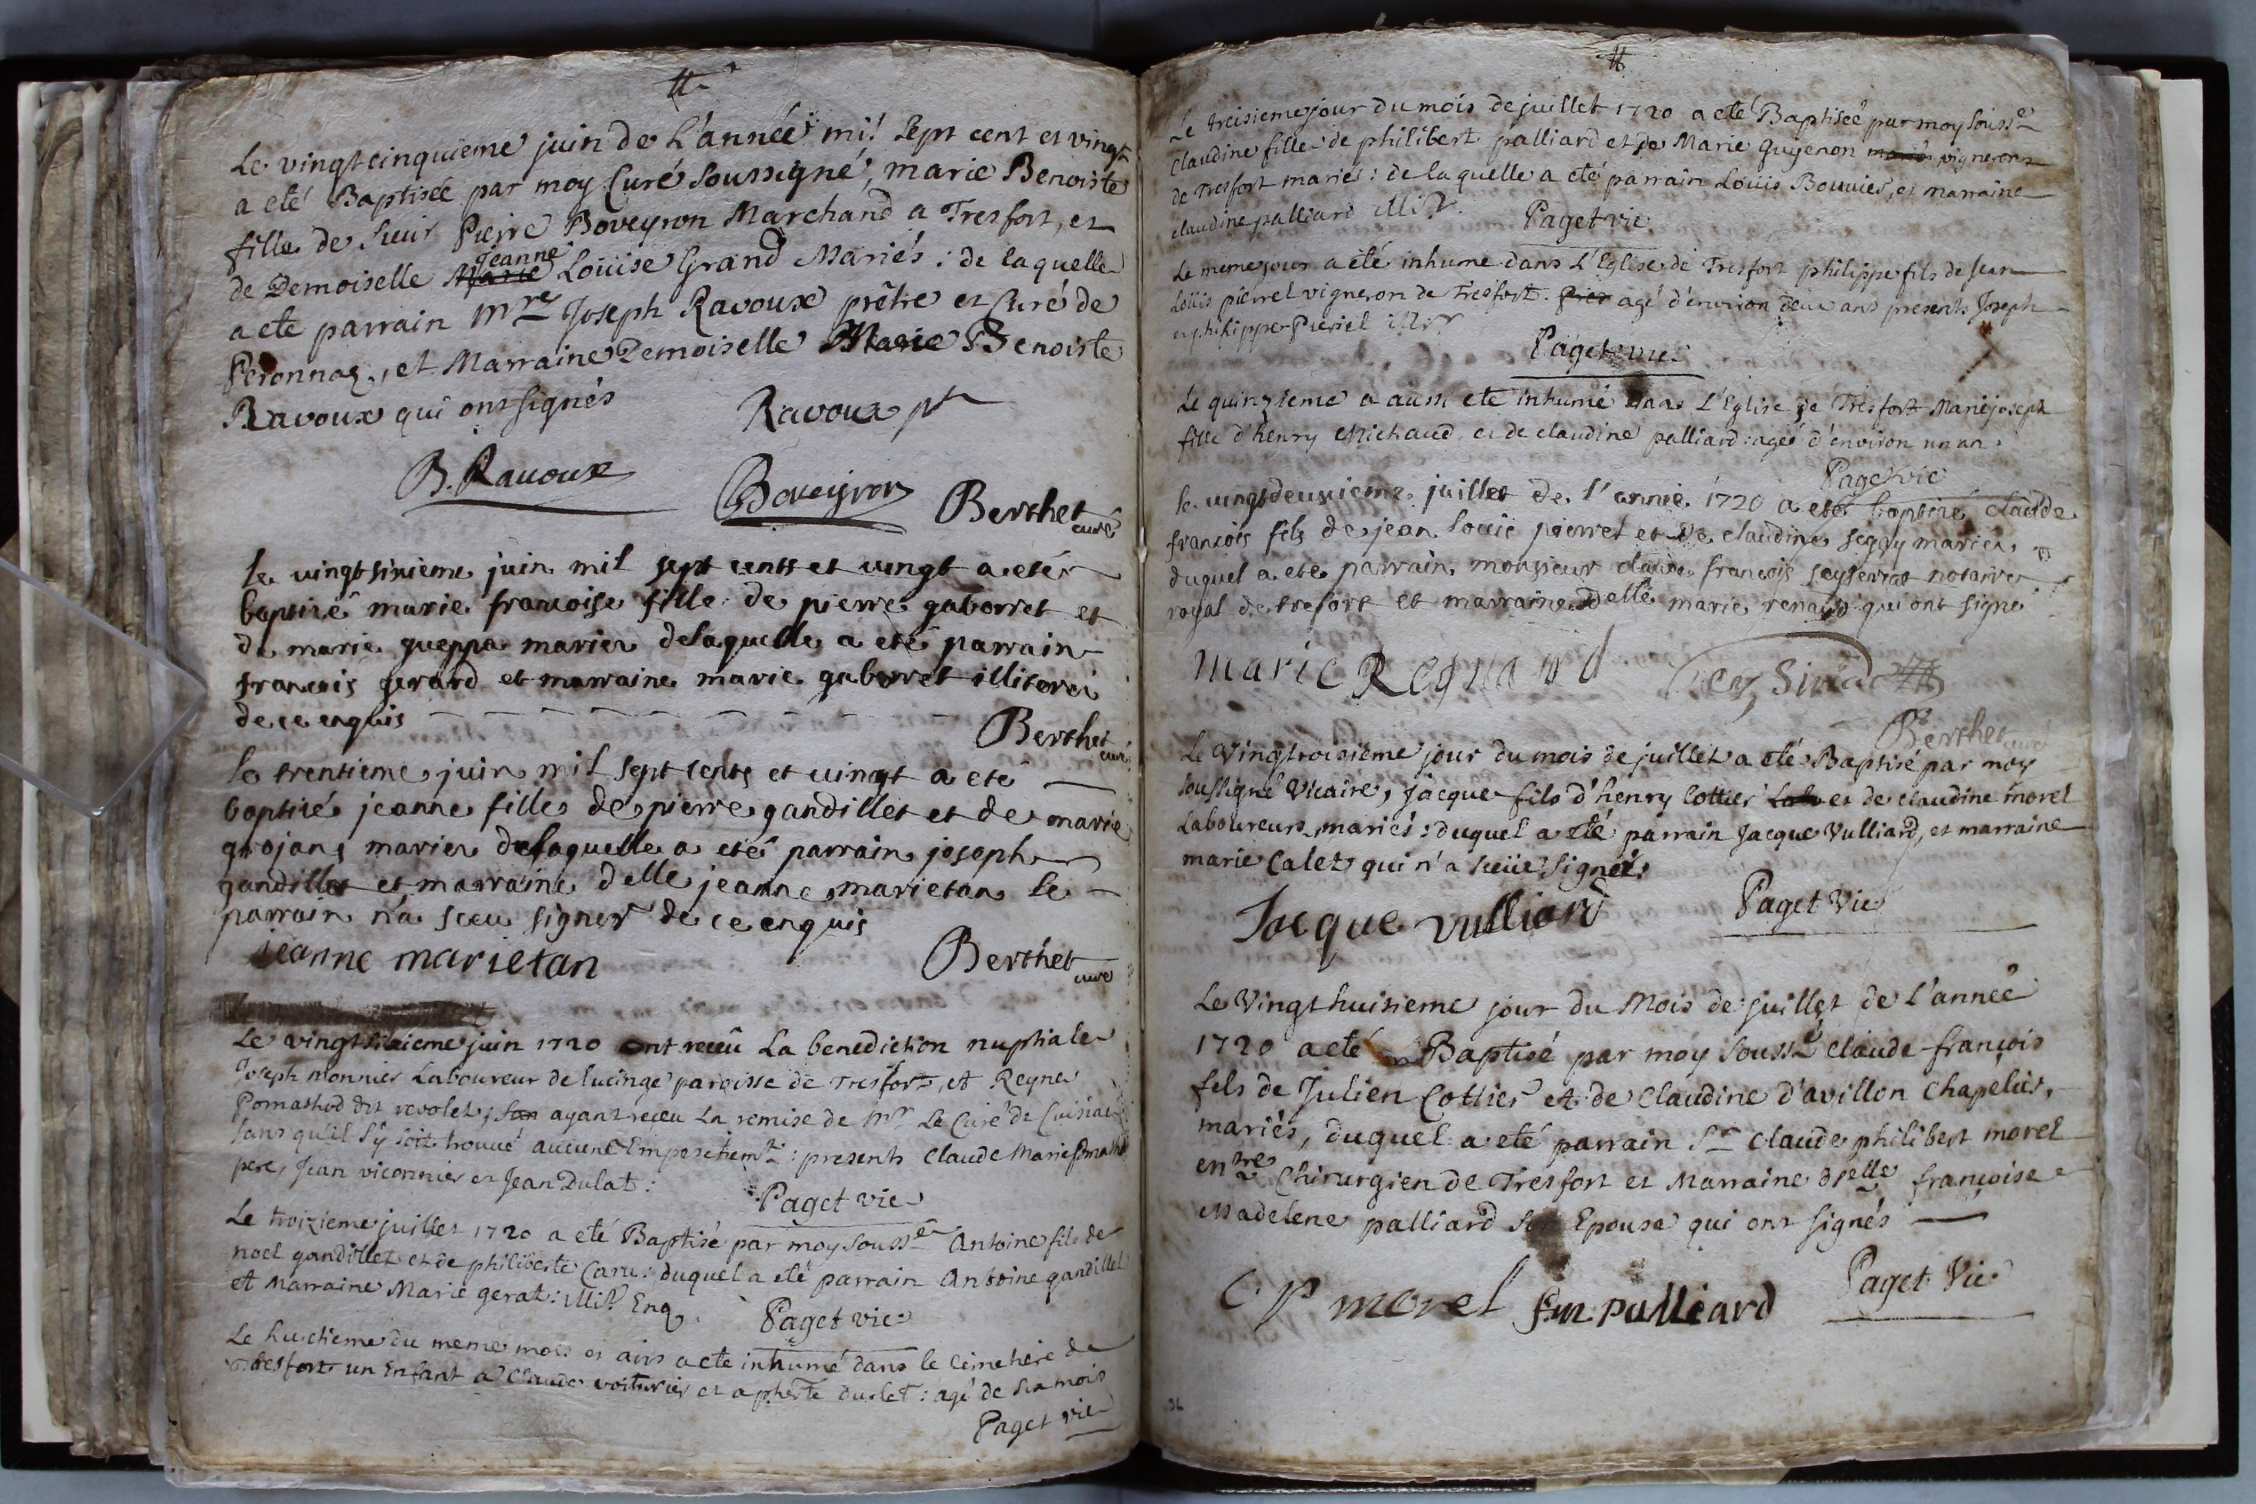 Le vingtcinquieme juin de L'année mil sept cent et vingt
a eté Baptisée par moy Curé soussigné, marie Benoiste
fille de sieur Pierre Boveyron Marchand a Tresfort, et
de Demoiselle Marie jeanne Loüise Grand Mariés : de laquelle
a ete parrain mre Joseph Ravoux prêtre et Curé de
Peronnaz, et Marraine Demoiselle Marie Benoiste
Ravoux qui ont signés
Ravoux ptr
B. Ravoux
Boveyron
Berthet curé
le vingt sixieme juin mil sept cents et vingt a eté
baptizé marie francoise fille de pierre gaborret et
de marie gueppa mariez de laquelle a eté parrain
francois gerard et marraine marie gaborret illiterez
de ce enquis
Berthet curé
le trentieme juin mil sept cents et vingt a eté
baptizé jeanne fille de pierre gandillet et de marie
grojans mariez de laquelle a eté parrain joseph
gandillet et marraine delle jeanne marietan le
parrain n'a sceu signer de ce enquis
jeanne marietan
Berthet curé
Le vingt sixieme juin 1720 ont receû La benediction nuptiale
Joseph monnier Laboureur de lucinge paroisse de Tresfort, et Reyne
Pomathod dit revolet, ayant receu La remise de Mr Le Curé de Cuisiat
sans qu'il s'y soit trouvé aucune Empeschemt : presents Claude Marie Pomathod
pere, Jean viconnier et Jean Dulat :
Paget vic
Le troizieme juillet 1720 a eté Baptisé par moy sousse Antoine fils de
noel gandillet et de philiberte Caru : duquel a eté parrain Antoine gandillet
et Marraine Marie gerat : illit. Enq.
Paget vic
Le huictieme du meme mois et an a ete inhumé dans le Cimetiere de
Tresfort un Enfant a Claude voiturier et a pherte durlet : agé de six mois
Paget vic
Le treisieme jour du mois de juillet 1720 a eté Baptisée par moy sousse
Claudine fille de philibert palliard et de Marie guyenon mariés vignerons
de Tresfort mariés : de laquelle a eté parrain Loüis Bouvier, et marraine
claudine palliard illit.
Paget vic
Le meme jour a eté inhumé dans L'Eglise de Tresfort philippe fils de Jean
Loüis pierrel vigneron de Tresfort. agé d'environ deux ans presents Joseph
et philippe Pierrel illit
Paget vic
Le quinzieme a aussi eté inhumé dans L'Eglise de Tresfort Marie joseph
fille d'henry Michaud et de claudine palliard : ageé d'environ un an.
Paget vic
le vingtdeuxieme juillet de l'année 1720 a eté baptizé claude
francois fils de jean louis pierrel et de claudine segoy mariez,
duquel a eté parrain monsieur claude francois seyserat notaire
royal de trefort et marraine delle marie renaud qui ont signé
Marie Regnaud
Berthet curé
Le Vingtroisieme jour du mois de juillet a eté Baptisé par moy
soussigné Vicaire, Jacque fils d'henry Cottier et de claudine morel
Laboureurs mariés : duquel a eté parrain Jacque Vulliard, et marraine
marie Calez qui n'a sceüe signer.
Jacque vulliard
Paget Vic
Le Vingthuitieme jour du Mois de juillet de L'année
1720 a eté Baptisé par moy sousse Claude françois
fils de Julien Cottier et de Claudine d'avillon Chapelier,
mariés, duquel a eté parrain Sr Claude philibert morel
en tre Chirurgien de Tresfort et Marraine dlelle françoise
Madelene palliard son Epouse qui ont signés
C p morel
f.m. palliard
Paget Vic